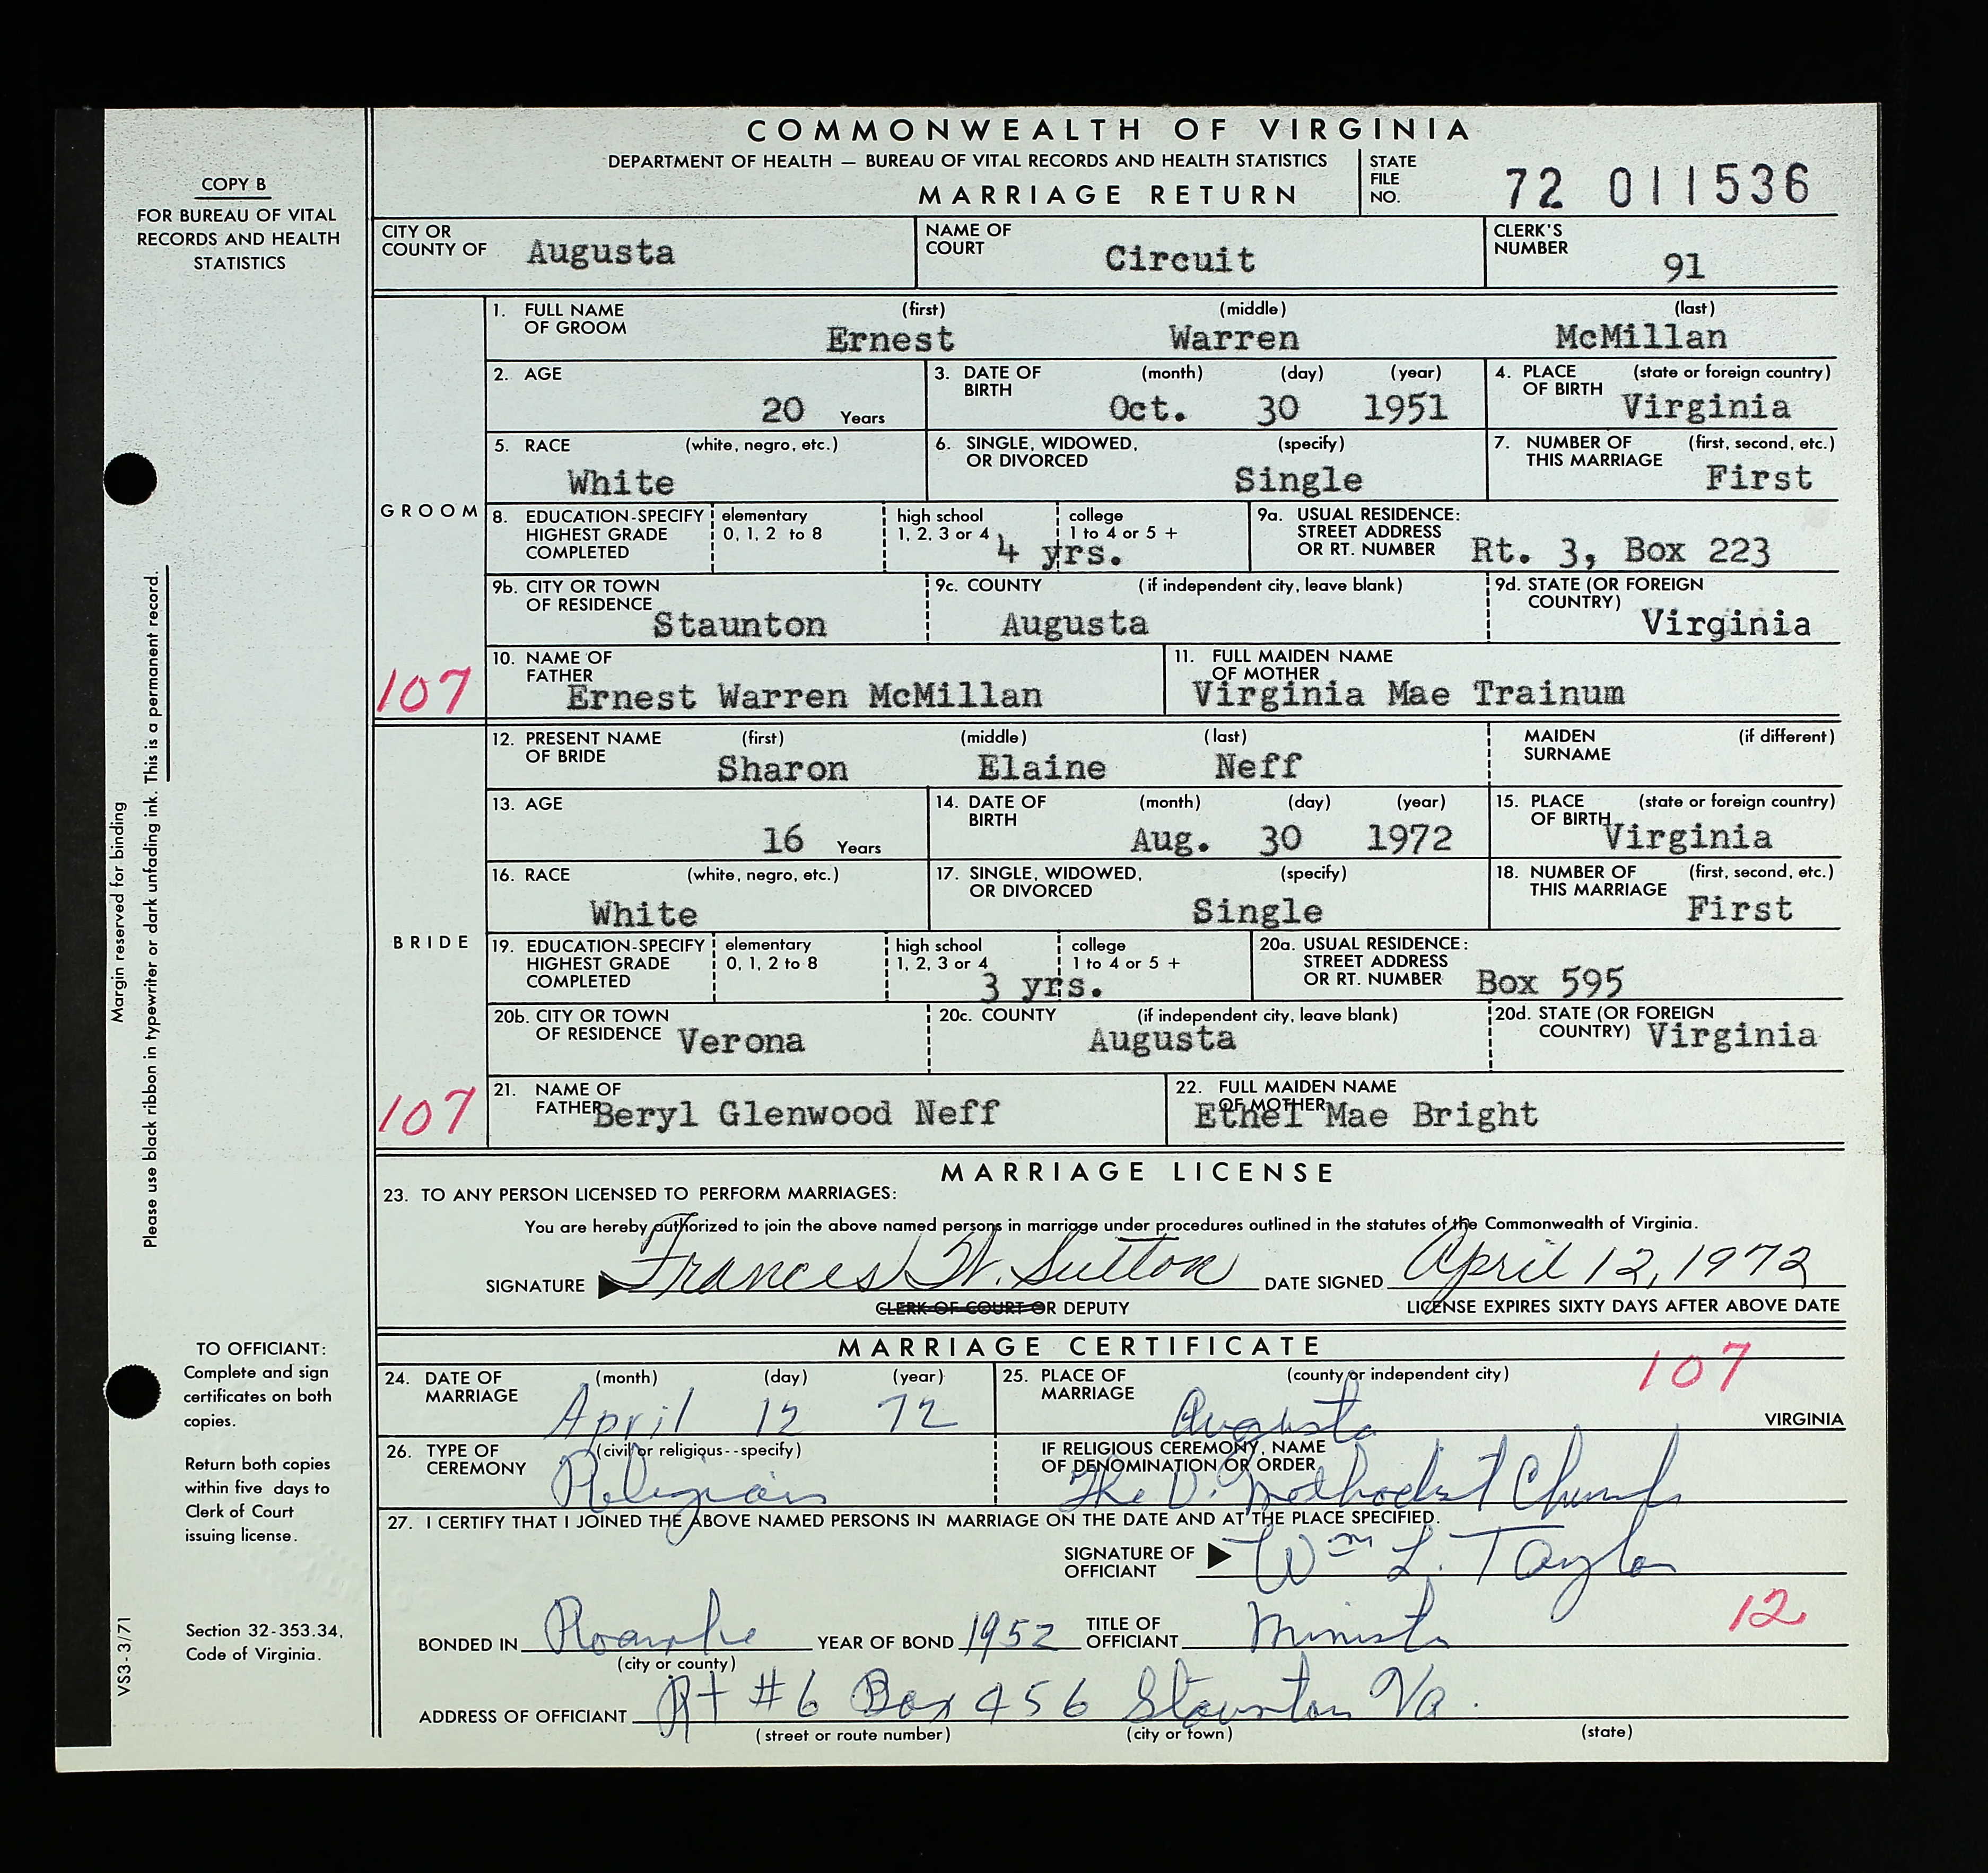 COPY B
FOR BUREAU OF VITAL
RECORDS AND HEALTH
STATISTICS
COMMONWEALTH OF VIRGINIA
DEPARTMENT OF HEALTH — BUREAU OF VITAL RECORDS AND HEALTH STATISTICS
MARRIAGE RETURN
STATE FILE NO. 72 011536
CITY OR COUNTY OF Augusta
NAME OF COURT Circuit
CLERK'S NUMBER 91
GROOM
1. FULL NAME OF GROOM (first) Ernest (middle) Warren (last) McMillan
2. AGE 20 Years
3. DATE OF BIRTH (month) Oct. (day) 30 (year) 1951
4. PLACE OF BIRTH (state or foreign country) Virginia
5. RACE (white, negro, etc.) White
6. SINGLE, WIDOWED, OR DIVORCED (specify) Single
7. NUMBER OF THIS MARRIAGE (first, second, etc.) First
8. EDUCATION-SPECIFY HIGHEST GRADE COMPLETED elementary 0, 1, 2 to 8 high school 1, 2, 3 or 4 college 1 to 4 or 5 + 4 yrs.
9a. USUAL RESIDENCE: STREET ADDRESS OR RT. NUMBER Rt. 3, Box 223
9b. CITY OR TOWN OF RESIDENCE Staunton
9c. COUNTY (if independent city, leave blank) Augusta
9d. STATE (OR FOREIGN COUNTRY) Virginia
107
10. NAME OF FATHER Ernest Warren McMillan
11. FULL MAIDEN NAME OF MOTHER Virginia Mae Trainum
BRIDE
12. PRESENT NAME OF BRIDE (first) Sharon (middle) Elaine (last) Neff
MAIDEN SURNAME (if different)
13. AGE 16 Years
14. DATE OF BIRTH (month) Aug. (day) 30 (year) 1972
15. PLACE OF BIRTH (state or foreign country) Virginia
16. RACE (white, negro, etc.) White
17. SINGLE, WIDOWED, OR DIVORCED (specify) Single
18. NUMBER OF THIS MARRIAGE (first, second, etc.) First
19. EDUCATION-SPECIFY HIGHEST GRADE COMPLETED elementary 0, 1, 2 to 8 high school 1, 2, 3 or 4 college 1 to 4 or 5 + 3 yrs.
20a. USUAL RESIDENCE: STREET ADDRESS OR RT. NUMBER Box 595
20b. CITY OR TOWN OF RESIDENCE Verona
20c. COUNTY (if independent city, leave blank) Augusta
20d. STATE (OR FOREIGN COUNTRY) Virginia
107
21. NAME OF FATHER Beryl Glenwood Neff
22. FULL MAIDEN NAME OF MOTHER Ethel Mae Bright
MARRIAGE LICENSE
23. TO ANY PERSON LICENSED TO PERFORM MARRIAGES:
You are hereby authorized to join the above named persons in marriage under procedures outlined in the statutes of the Commonwealth of Virginia.
SIGNATURE Frances W. Sutton DATE SIGNED April 12, 1972
CLERK OF COURT OR DEPUTY
LICENSE EXPIRES SIXTY DAYS AFTER ABOVE DATE
MARRIAGE CERTIFICATE
24. DATE OF MARRIAGE (month) April (day) 12 (year) 72
25. PLACE OF MARRIAGE (county or independent city) Augusta VIRGINIA
107
26. TYPE OF CEREMONY (civil or religious--specify) Religious
IF RELIGIOUS CEREMONY, NAME OF DENOMINATION OR ORDER The U. Methodist Church
27. I CERTIFY THAT I JOINED THE ABOVE NAMED PERSONS IN MARRIAGE ON THE DATE AND AT THE PLACE SPECIFIED.
SIGNATURE OF OFFICIANT Wm L. Taylor
12
BONDED IN Roanoke (city or county) YEAR OF BOND 1952 TITLE OF OFFICIANT Minister
ADDRESS OF OFFICIANT Rt #6 Box 456 Staunton Va.
(street or route number) (city or town) (state)
Margin reserved for binding
Please use black ribbon in typewriter or dark unfading ink. This is a permanent record.
TO OFFICIANT:
Complete and sign
certificates on both
copies.
Return both copies
within five days to
Clerk of Court
issuing license.
Section 32-353.34,
Code of Virginia.
VS3-3/71